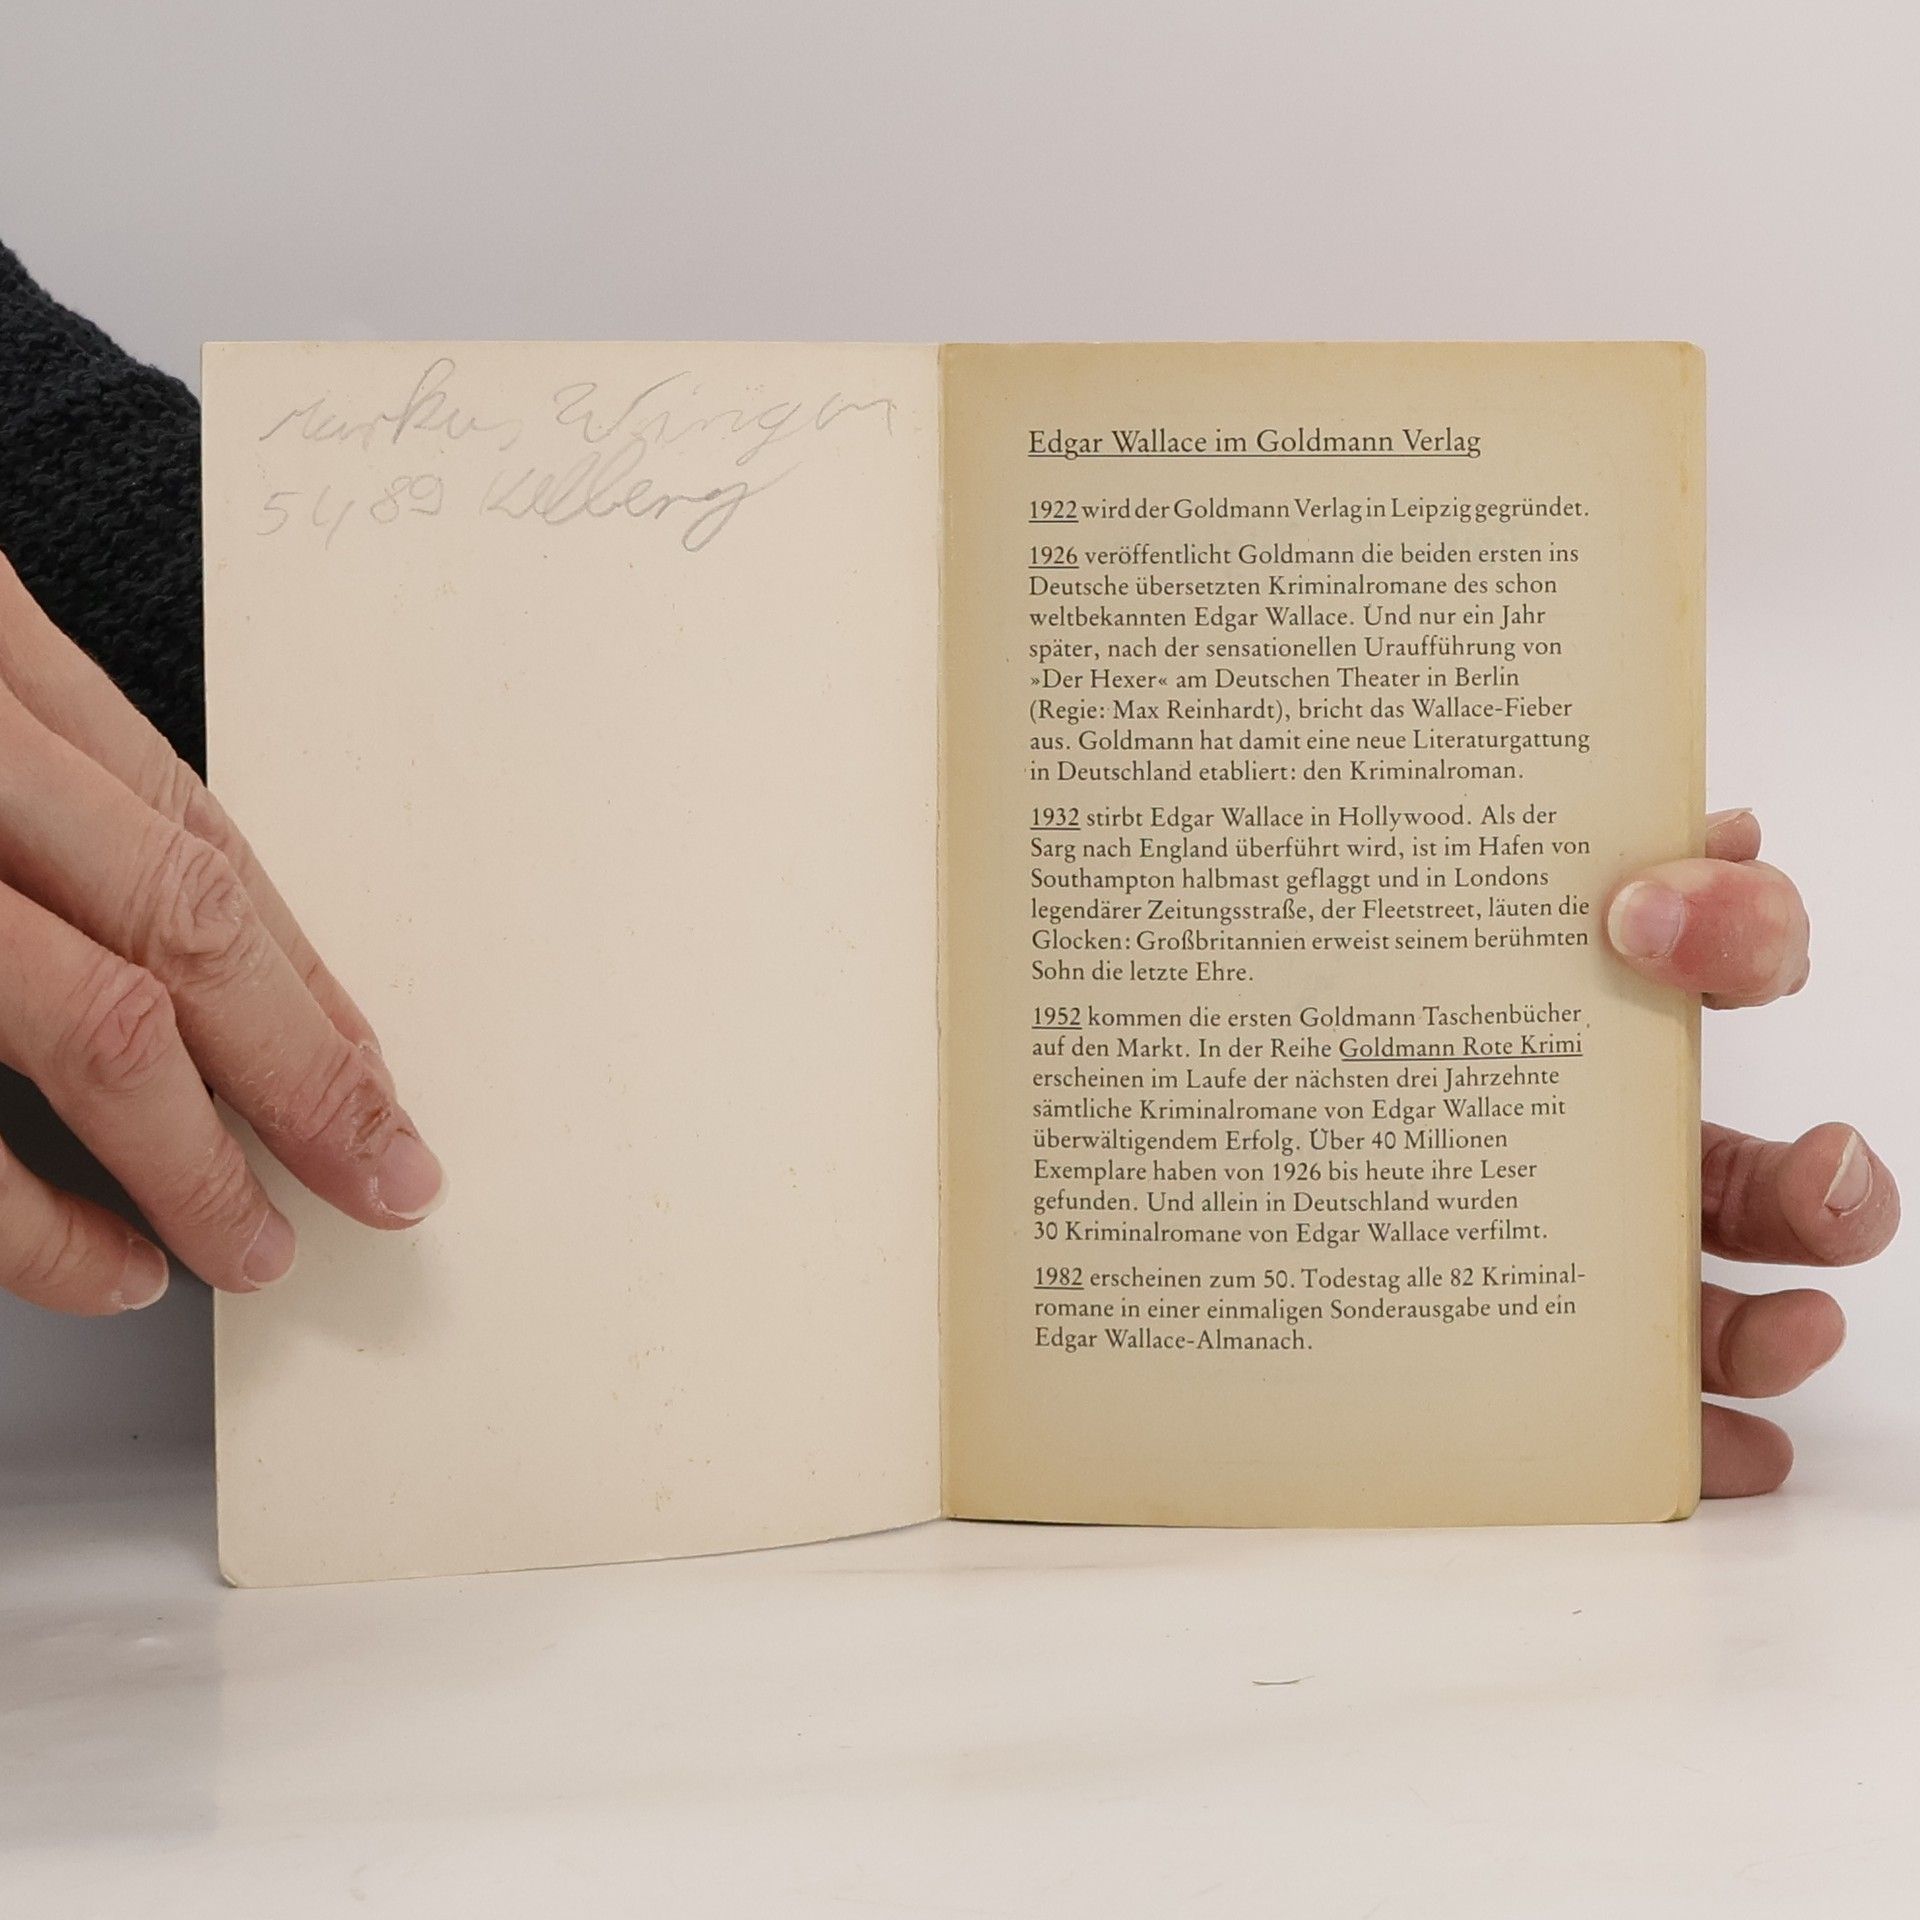 Markus Wingen
5489 Kelberg
Edgar Wallace im Goldmann Verlag
1922 wird der Goldmann Verlag in Leipzig gegründet.
1926 veröffentlicht Goldmann die beiden ersten ins
Deutsche übersetzten Kriminalromane des schon
weltbekannten Edgar Wallace. Und nur ein Jahr
später, nach der sensationellen Uraufführung von
»Der Hexer« am Deutschen Theater in Berlin
(Regie: Max Reinhardt), bricht das Wallace-Fieber
aus. Goldmann hat damit eine neue Literaturgattung
in Deutschland etabliert: den Kriminalroman.
1932 stirbt Edgar Wallace in Hollywood. Als der
Sarg nach England überführt wird, ist im Hafen von
Southampton halbmast geflaggt und in Londons
legendärer Zeitungsstraße, der Fleetstreet, läuten die
Glocken: Großbritannien erweist seinem berühmten
Sohn die letzte Ehre.
1952 kommen die ersten Goldmann Taschenbücher
auf den Markt. In der Reihe Goldmann Rote Krimi
erscheinen im Laufe der nächsten drei Jahrzehnte
sämtliche Kriminalromane von Edgar Wallace mit
überwältigendem Erfolg. Über 40 Millionen
Exemplare haben von 1926 bis heute ihre Leser
gefunden. Und allein in Deutschland wurden
30 Kriminalromane von Edgar Wallace verfilmt.
1982 erscheinen zum 50. Todestag alle 82 Kriminal-
romane in einer einmaligen Sonderausgabe und ein
Edgar Wallace-Almanach.